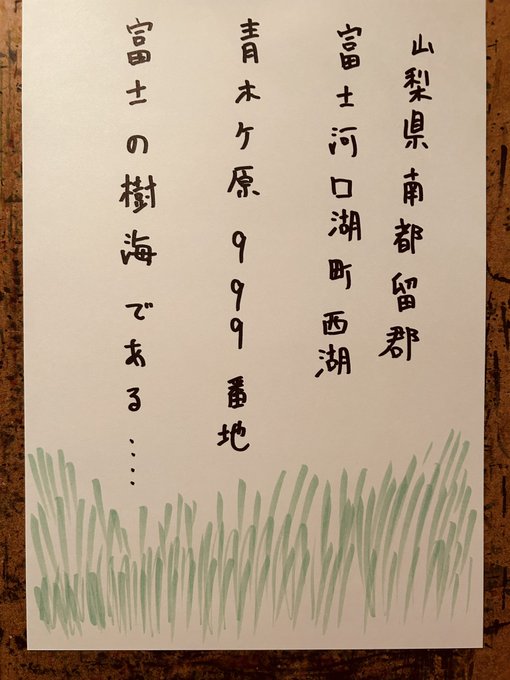 山梨県南都留郡
富士河口湖町西湖
青木ケ原999番地
富士の樹海である....